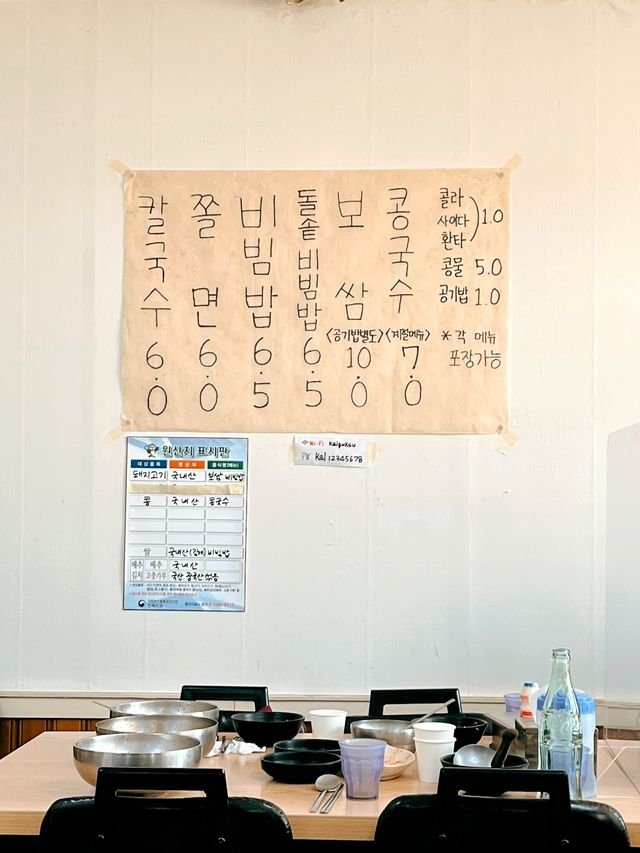 칼국수 6.0
쫄면 6.0
비빔밥 6.5
돌솥비빔밥 6.5
보쌈 <공기밥별도> 10.0
콩국수 <계절메뉴> 7.0
콜라
사이다
환타
1.0
콩물 5.0
공기밥 1.0
* 각 메뉴
포장가능
Wi-Fi Kalguksu
PW. Kal12345678
원산지 표시판
대상품목 원산지 음식명(메뉴)
돼지고기 국내산 보쌈 비빔밥
콩 국내산 콩국수
쌀 국내산(김제) 비빔밥
배추김치 배추 국내산
고춧가루 국산 중국산 섞음